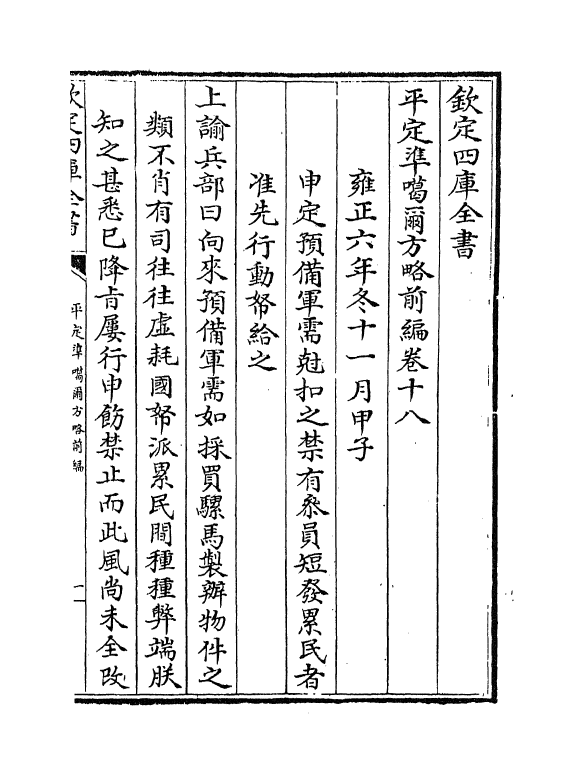 欽定四庫全書
平定準噶爾方略前編卷十八
雍正六年冬十一月甲子
申定預備軍需尅扣之禁有叅員短發累民者
准先行動帑給之
上諭兵部曰向來預備軍需如採買騾馬製辦物件之
類不肖有司往往虛耗國帑派累民間種種弊端朕
知之甚悉已降㫖屢行申飭禁止而此風尚未全改
欽定四庫全書
平定準噶爾方略前編
一